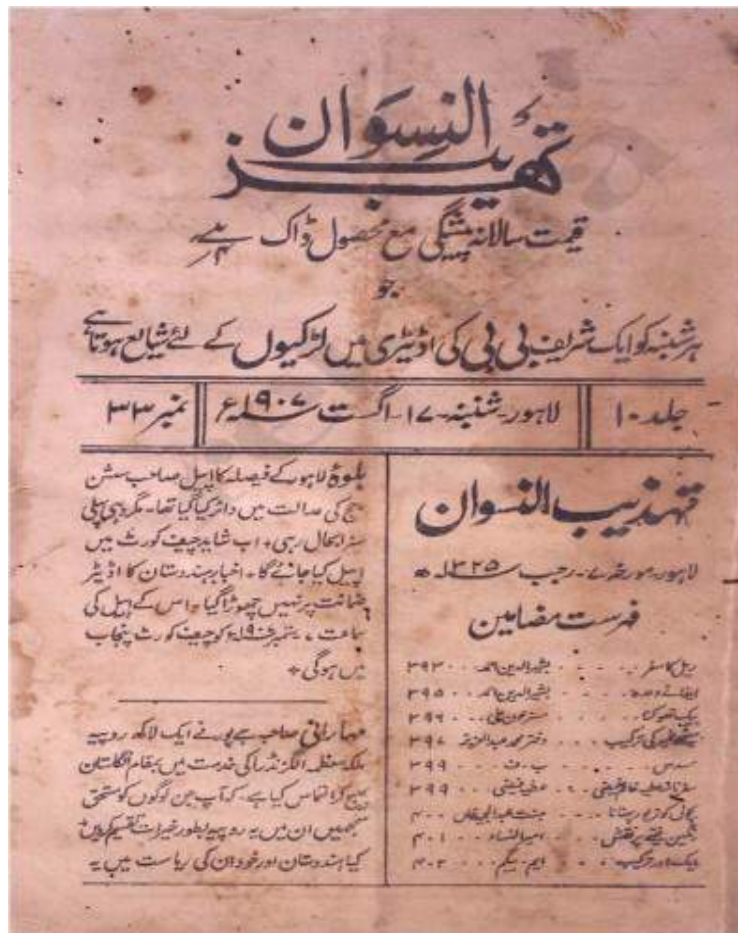 تہذیب النسوان
قیمت سالانہ پیشگی مع محصول ڈاک
جو
ہر شنبہ کو ایک شریف بی بی کی اڈیٹری میں لڑکیوں کے لئے شایع ہوتا ہے
جلد ۱۰
لاہور - شنبہ - ۱۷ - اگست سنہ ۱۹۰۷ء
نمبر ۳۳
تہذیب النسوان
لاہور - مورخہ ۷ - رجب سنہ ۱۳۲۵ ھ
فہرست مضامین
ریل کا سفر بشیر الدین احمد ۳۹۳
ایفائے وعدہ بشیر الدین احمد ۳۹۵
۳۹۶
کی ترکیب دختر محمد عبدالعزیز ۳۹۷
مسدس ب - ف ۳۹۹
عطیہ فیضی ۳۹۹
کو زیور پہنانا بنت عبدالحی خاں ۴۰۰
پر نقش امیر النساء ۴۰۱
ایک اور ترکیب ایم - بیگم ۴۰۲
بلوۂ لاہور کے فیصلہ کا اپیل صاحب سشن
جج کی عدالت میں دائر کیا گیا تھا - مگر وہی پہلی
سزا بحال رہی + اب شاید چیف کورٹ میں
اپیل کیا جائے گا + اخبار ہندوستان کا اڈیٹر
ضمانت پر نہیں چھوڑا گیا + اس کے اپیل کی
سماعت ستمبر سنہ ۱۹۰۷ء کو چیف کورٹ پنجاب
میں ہوگی +
مہارانی صاحب جے پور نے ایک لاکھ روپیہ
ملکہ معظمہ الگزنڈرا کی خدمت میں بمقام انگلستان
بھیج کر التماس کیا ہے - کہ آپ جن لوگوں کو مستحق
سمجھیں ان میں یہ روپیہ بطور خیرات تقسیم کر دیں
کیا ہندوستان اور خود ان کی ریاست میں یہ